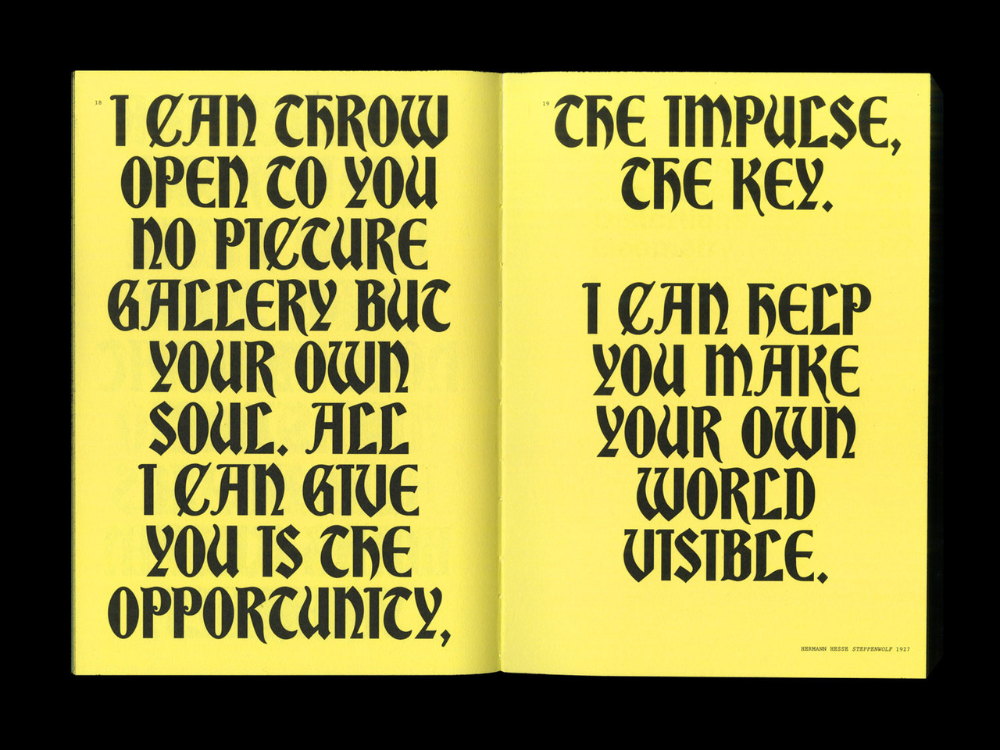 18
I CAN THROW
OPEN TO YOU
NO PICTURE
GALLERY BUT
YOUR OWN
SOUL. ALL
I CAN GIVE
YOU IS THE
OPPORTUNITY,
19
THE IMPULSE,
THE KEY.
I CAN HELP
YOU MAKE
YOUR OWN
WORLD
VISIBLE.
HERMANN HESSE STEPPENWOLF 1927